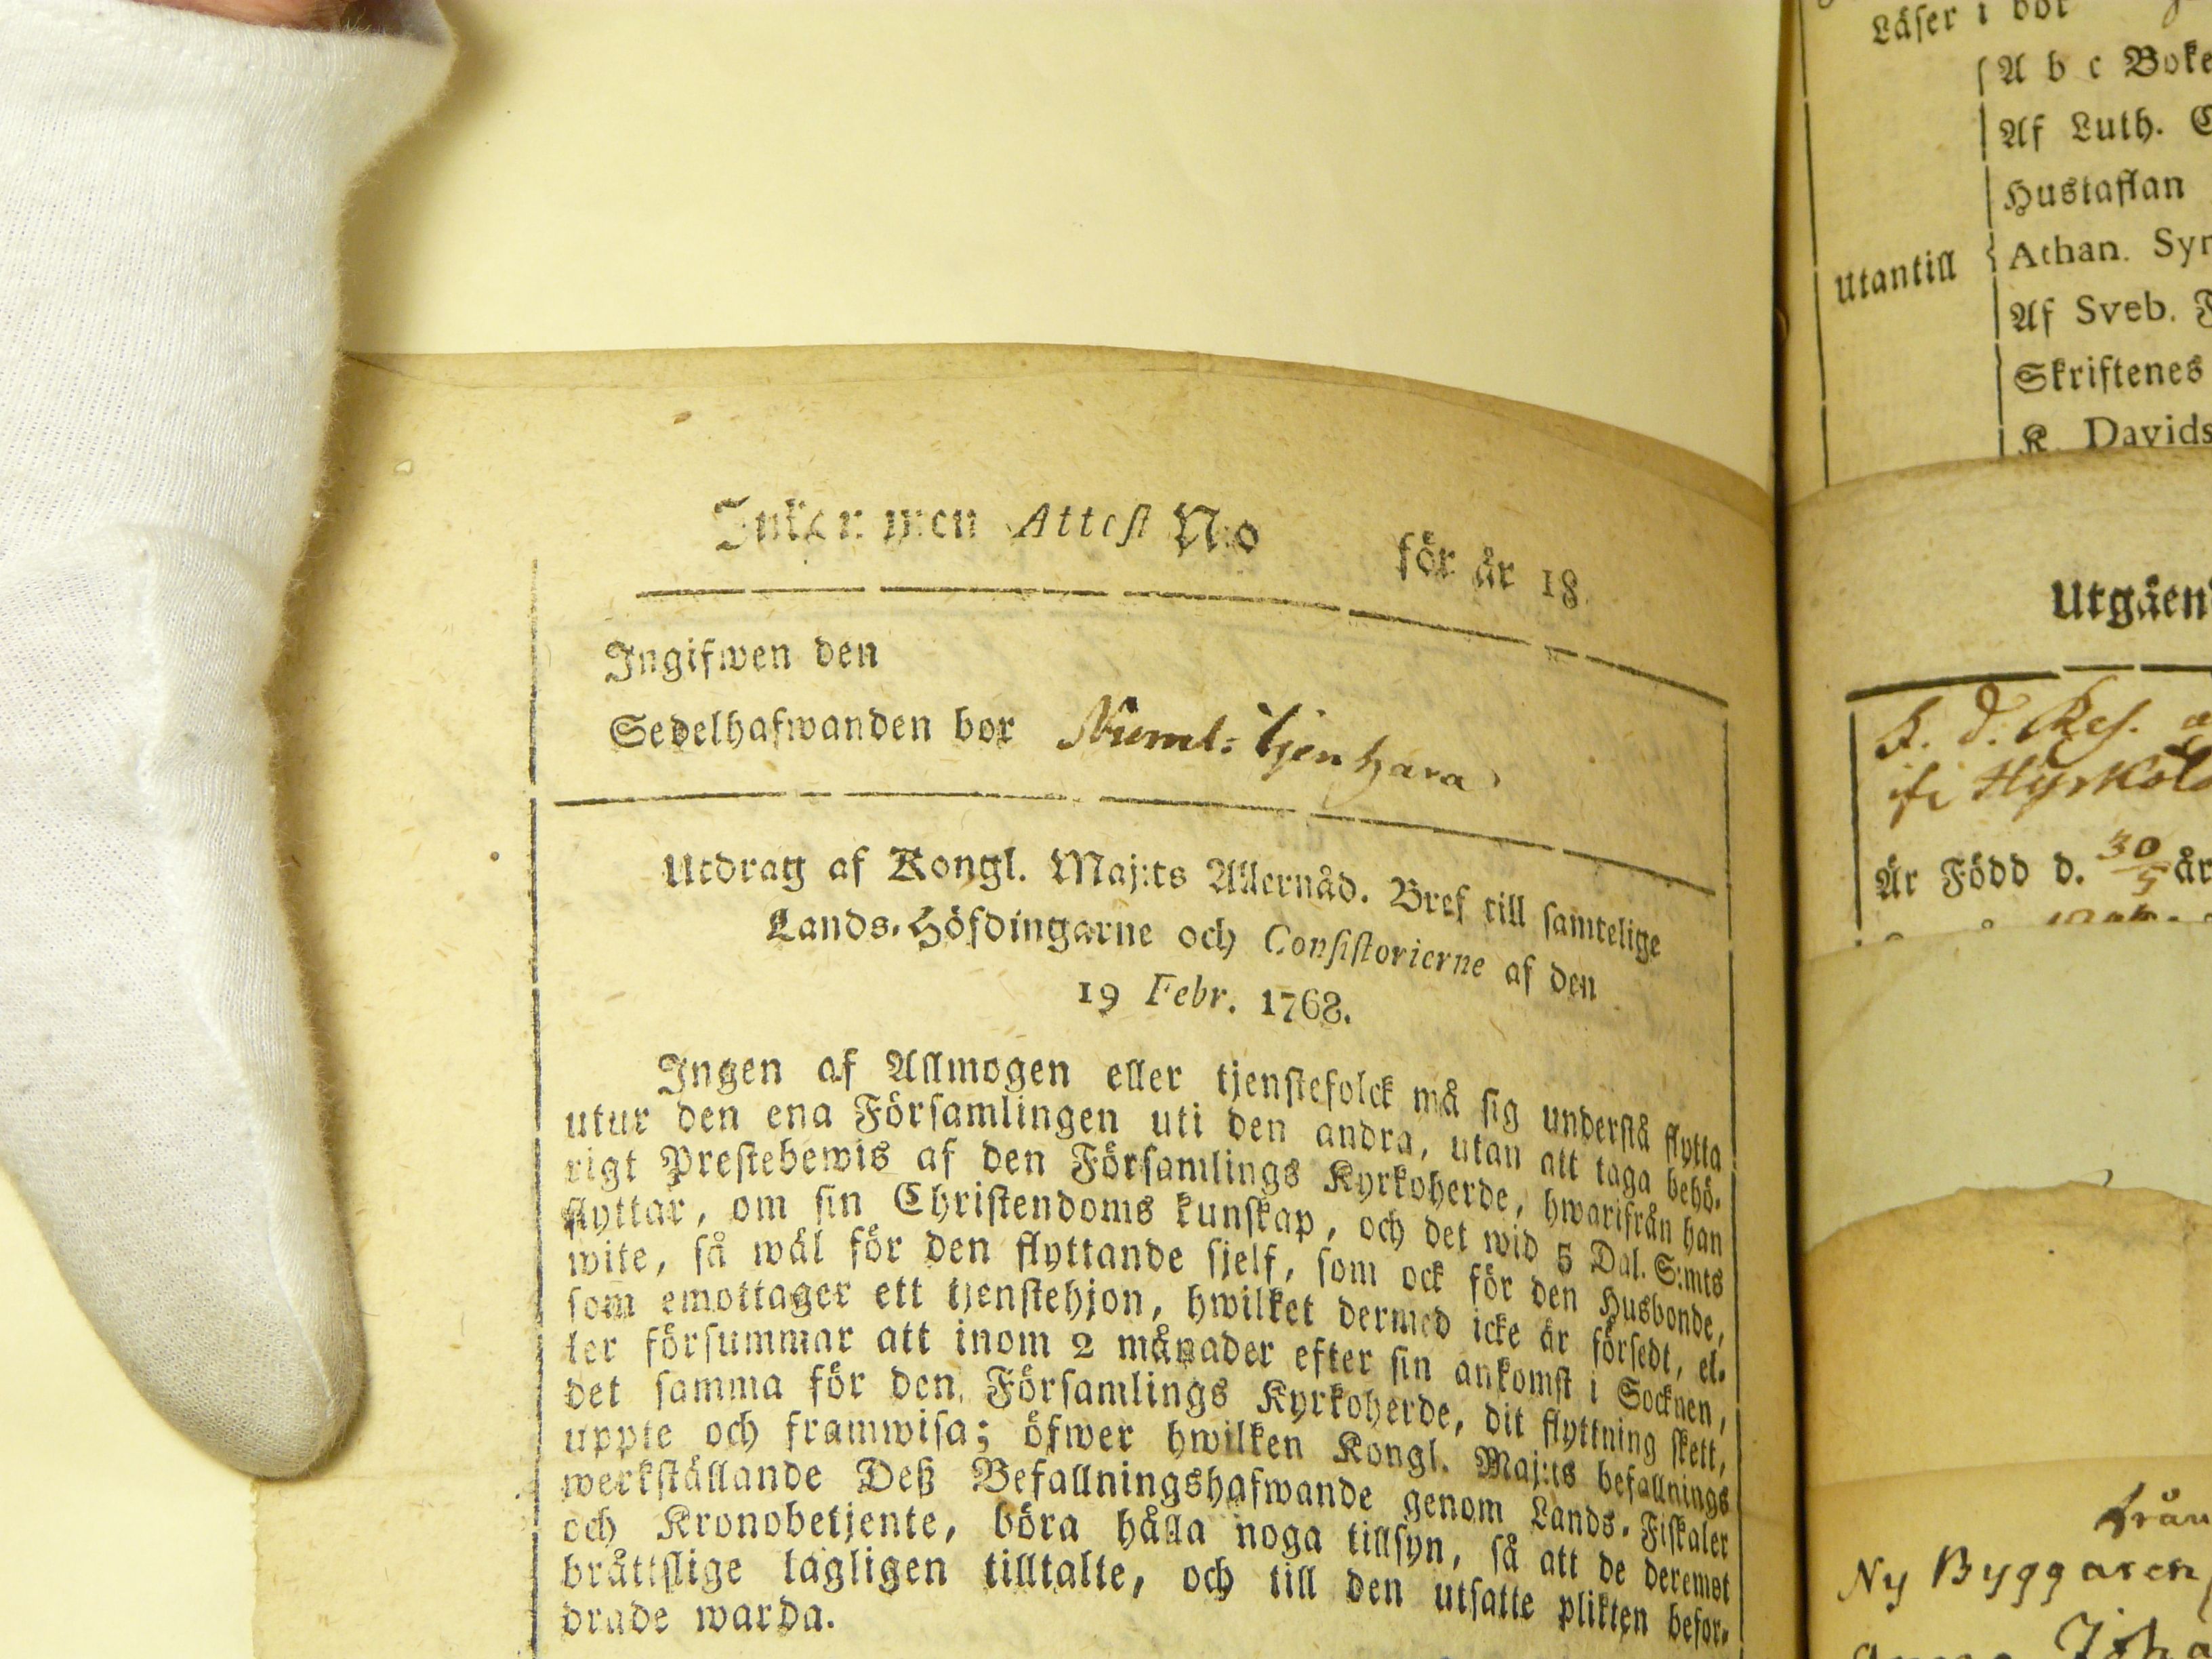 Inkommen Attest N:o för år 18
Ingifwen den
Sedelhafwanden bor
Utdrag af Kongl. Maj:ts Allernåd. Bref till samtelige
Lands-Höfdingarne och Consistorierne af den
19 Febr. 1768.
Ingen af Allmogen eller tjenstefolck må sig understå flytta
utur den ena Församlingen uti den andra, utan att taga behö-
rigt Prestebewis af den Församlings Kyrkoherde, hwarifrån han
flyttar, om sin Christendoms kunskap, och det wid 5 Dal. S:mts
wite, så wäl för den flyttande sjelf, som ock för den Husbonde,
som emottager ett tjenstehjon, hwilket dermed icke är försedt, el-
ler försummar att inom 2 månader efter sin ankomst i Socknen,
det samma för den Församlings Kyrkoherde, dit flyttning skett,
uppte och framwisa; öfwer hwilken Kongl. Maj:ts befallnings
werkställande Deß Befallningshafwande genom Lands-Fiskaler
och Kronobetjente, böra hålla noga tillsyn, så att de deremot
bråttslige lagligen tilltalte, och till den utsatte plikten befor-
drade warda.
Läser i bok
A b c Boke
Af Luth. C
Hustaflan
Utantill Athan. Sym
Af Sveb. F
Skriftenes
K. Davids
Utgåen
Är Född d. 30/5 år
från
Ny Byggaren